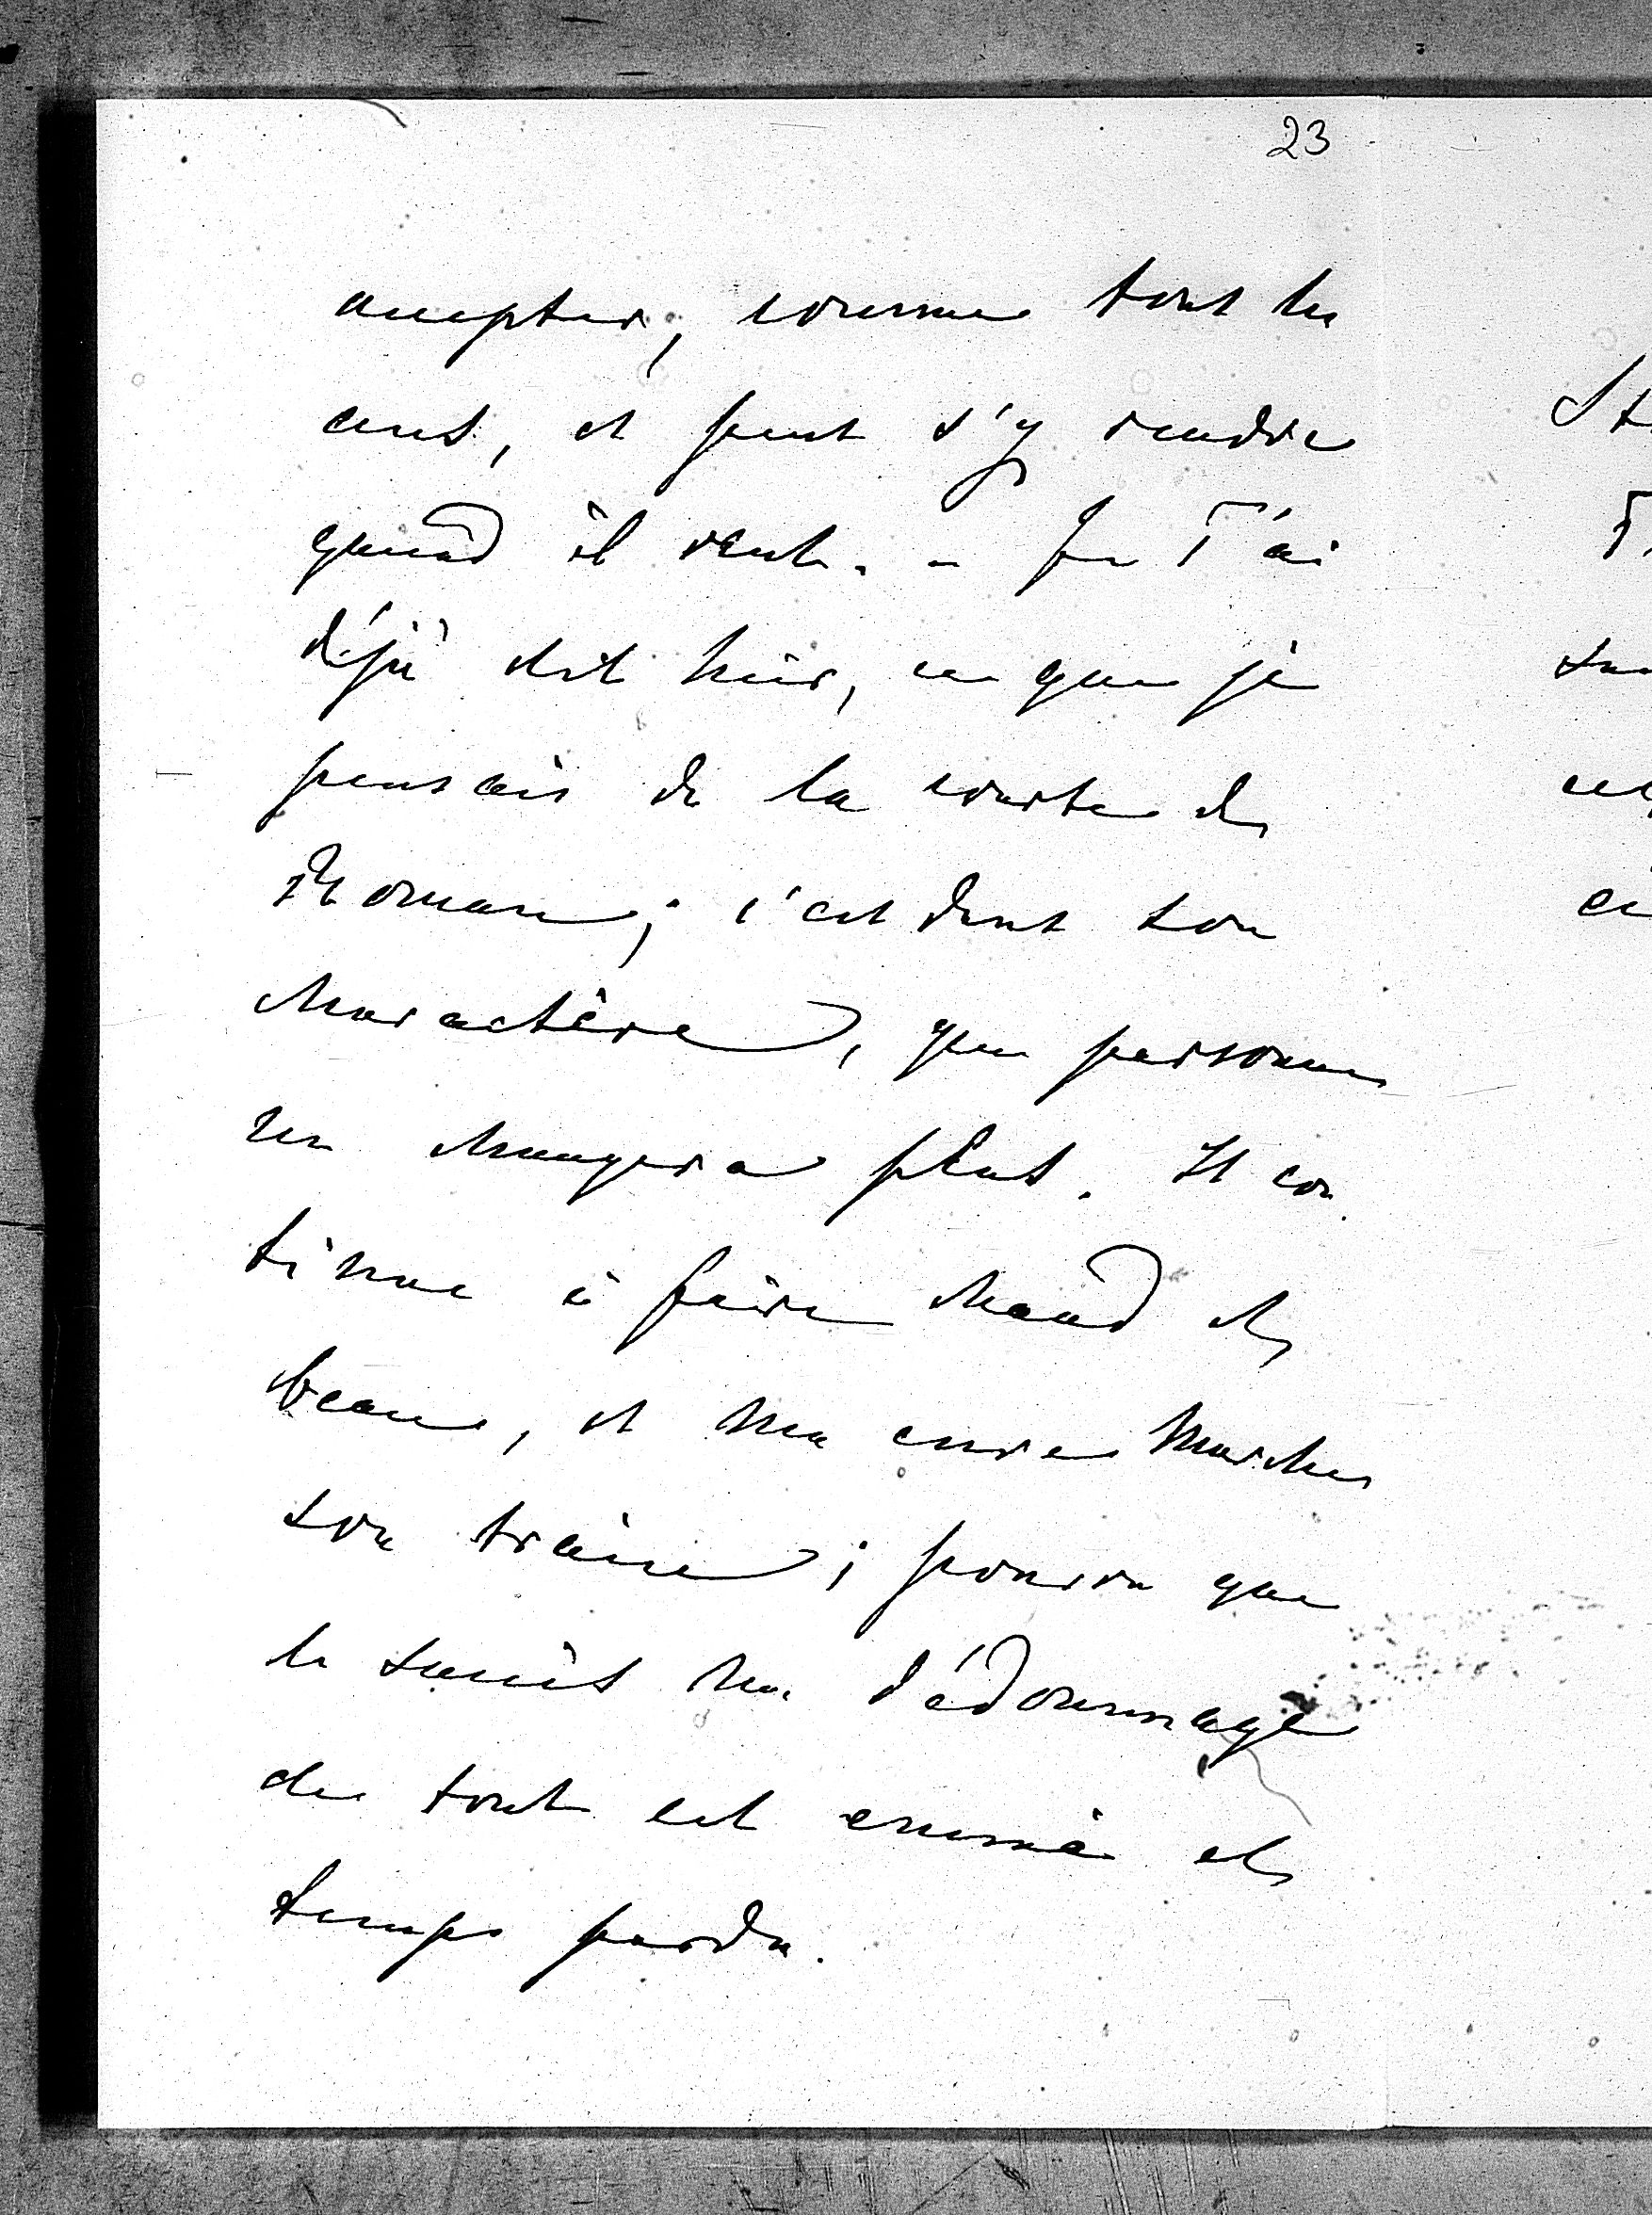 23
accepter, comme tous les
ans, et peut s'y rendre
quand il veut. – Je T'ai
déjà dit hier, ce que je
pensais de la course de
Roman; c'est dans son
charactère, que personne
ne changera plus. Il con
tinue à faire chaud et
beau, et ma cure marche
son traine; pourvu que
le succès me dédommage
de tout cet ennui et
temps perdu.